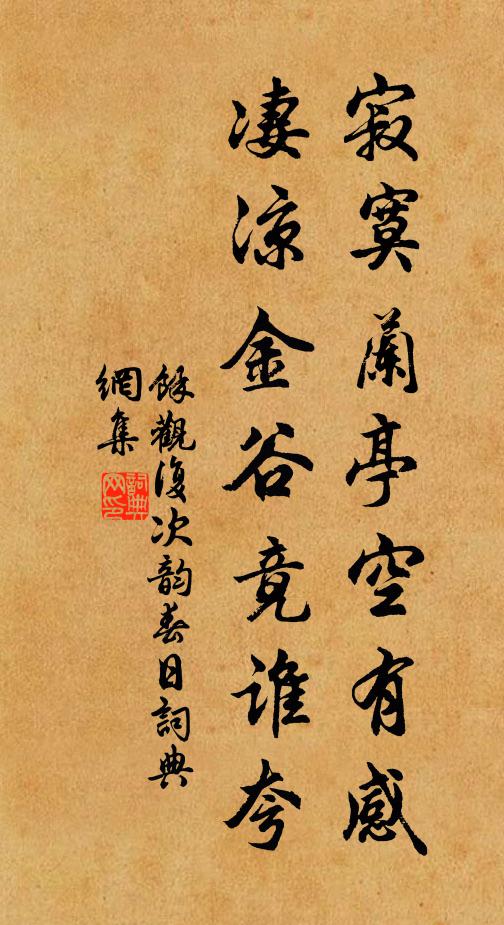 寂寞蘭亭空有感
凄涼金谷竟誰夸
餘觀復次韵春日詞典
網集
詞典
网印